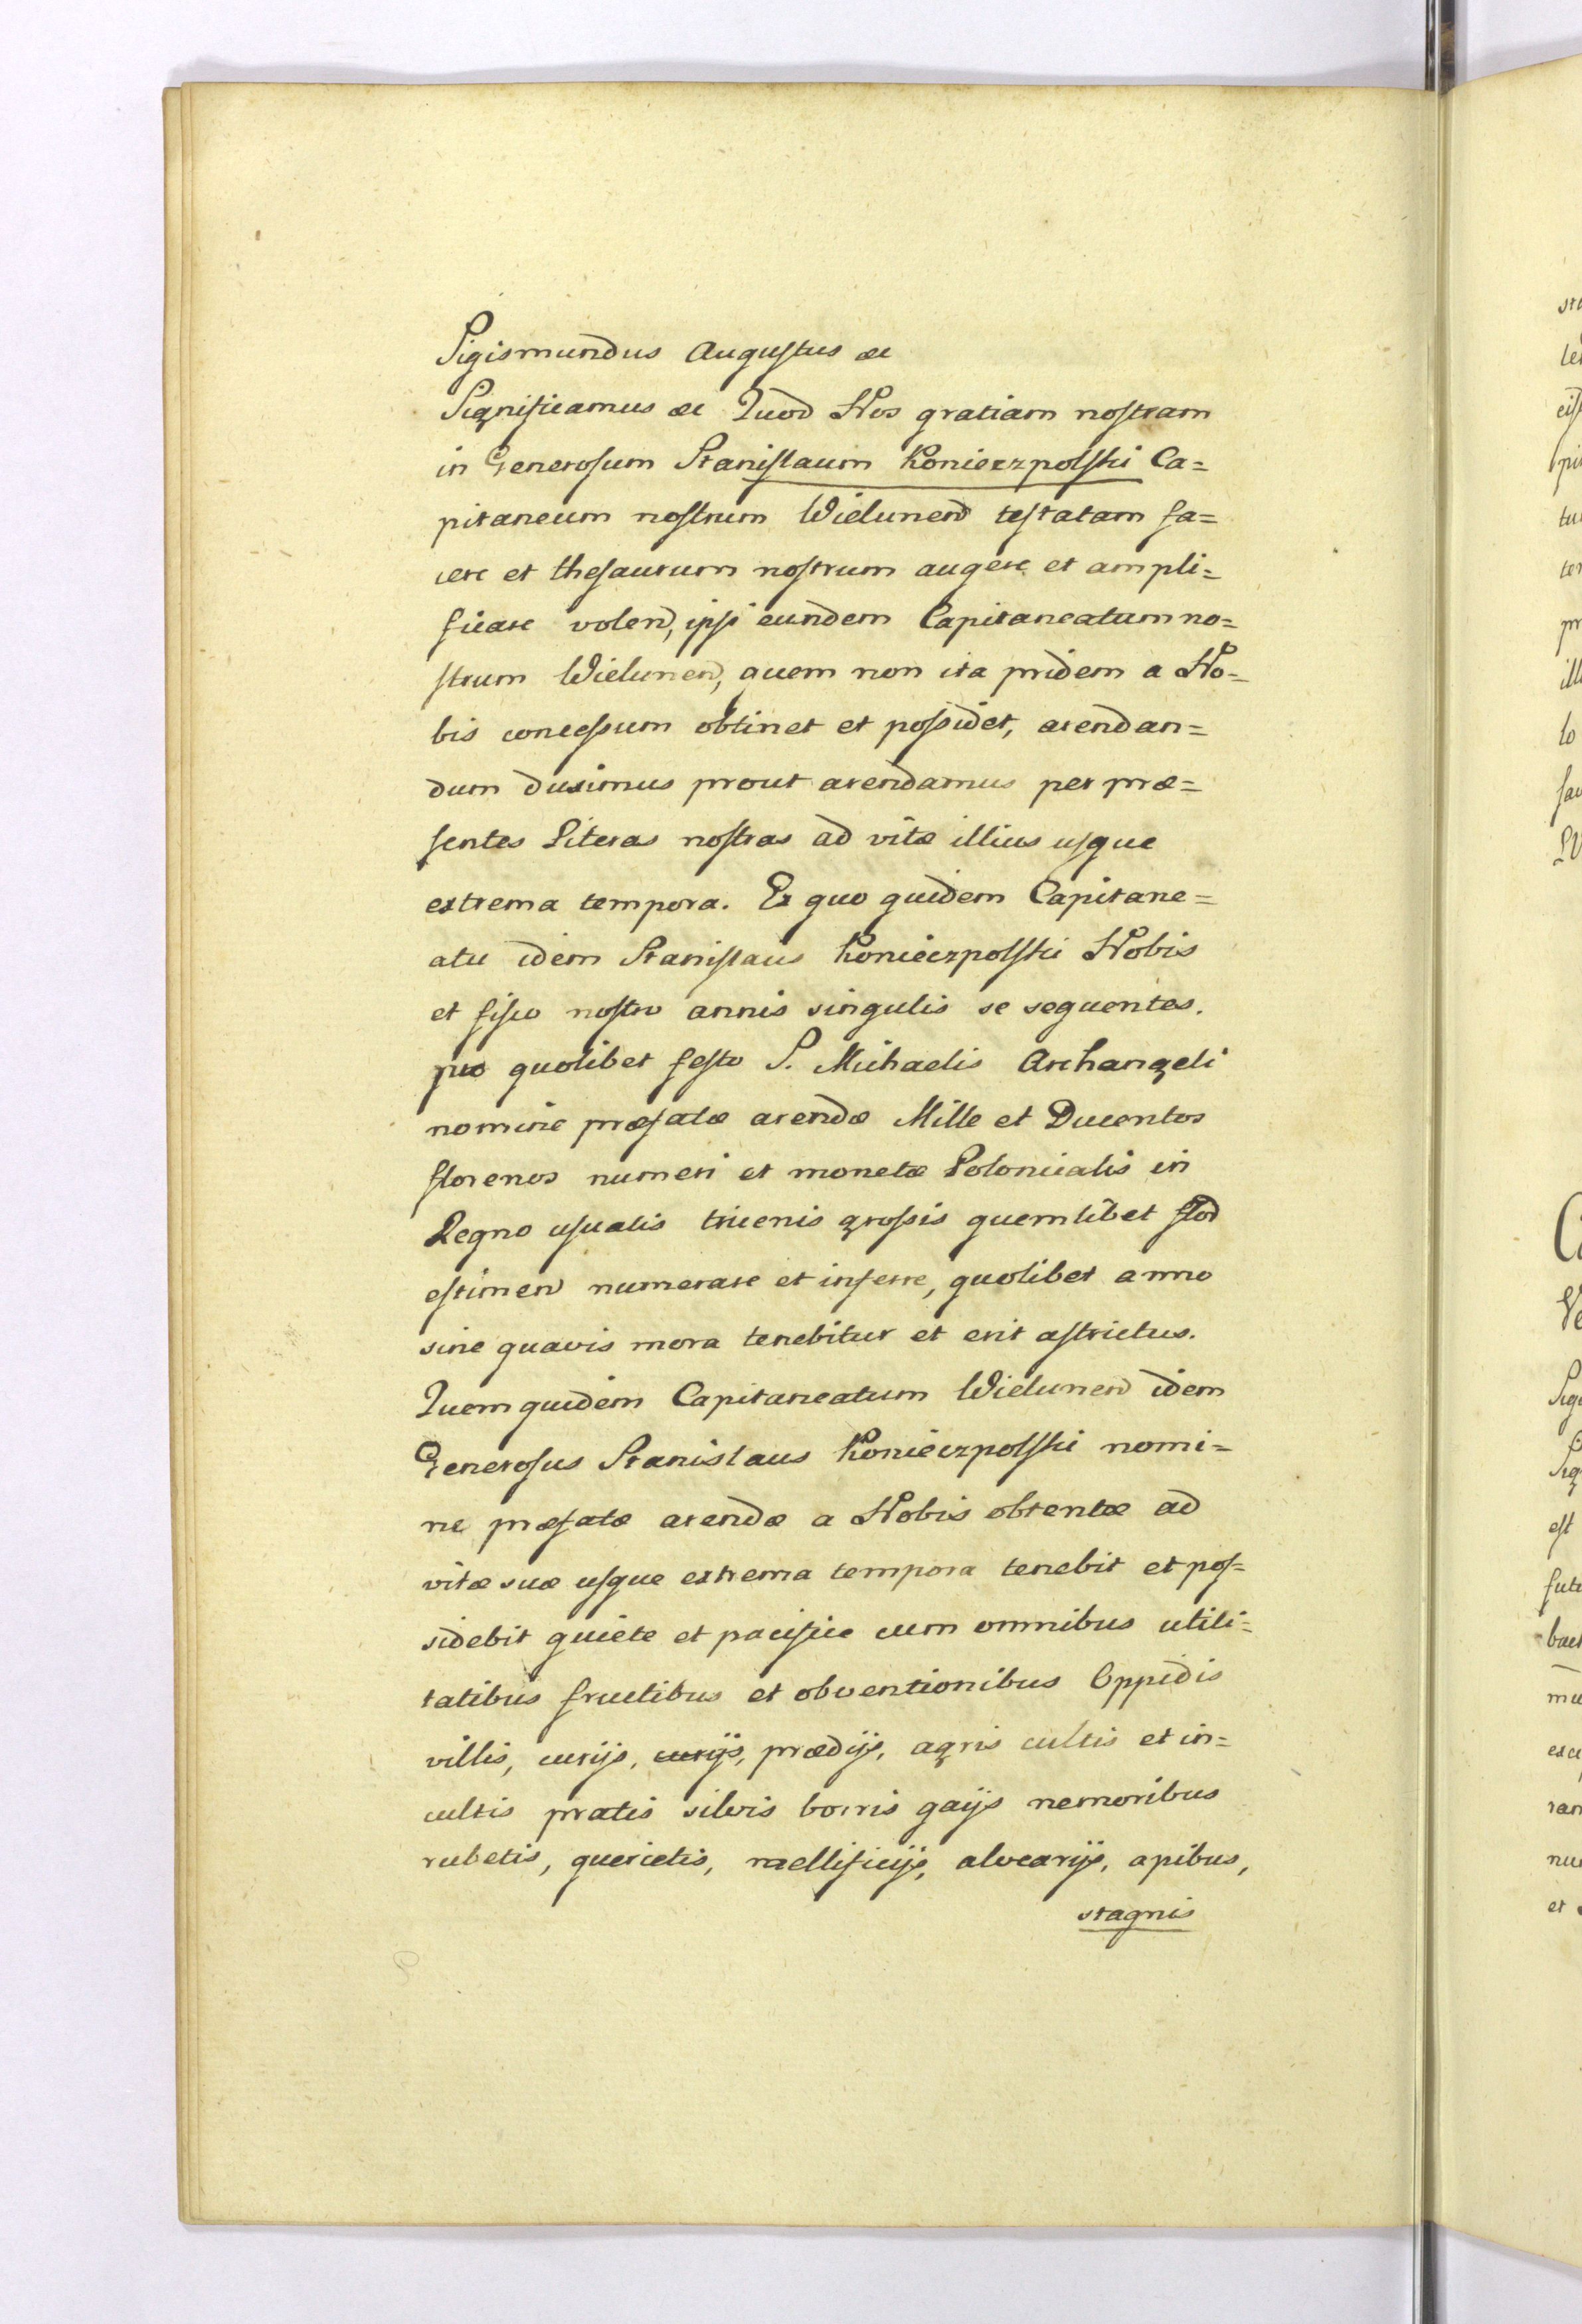 Sigismundus Augustus &c
Significamus &c Quod Nos gratiam nostram
in Generosum Stanislaum Konieczpolski Ca=
pitaneum nostrum Wielunen testatam fa=
cere et thesaurum nostrum augere et ampli=
ficare volen, ipsi eundem Capitaneatum no=
strum Wielunen, quem non ita pridem a No=
bis concessum obtinet et possidet, arendan=
dum duximus prout arendamus per præ=
sentes Literas nostras ad vitæ illius usque
extrema tempora. Ex quo quidem Capitane=
atu idem Stanislaus Konieczpolski Nobis
et fisco nostro annis singulis se sequentes.
pro quolibet festo S. Michaelis Archangeli
nomine præfatæ arendæ Mille et Ducentos
florenos numeri et monetæ Polonicalis in
Regno usualis tricenis grossis quemlibet flor
estimen numerare et inferre, quolibet anno
sine quavis mora tenebitur et erit astrictus.
Quemquidem Capitaneatum Wielunen idem
Generosus Stanislaus Konieczpolski nomi=
ne præfatæ arendæ a Nobis obtentæ ad
vitæ suæ usque extrema tempora tenebit et pos=
sidebit quiete et pacifice cum omnibus utili=
tatibus fructibus et obventionibus Oppidis
villis, curijs, curijs, prædijs, agris cultis et in=
cultis pratis silvis borris gaijs nemoribus
rubetis, quercetis, mellificijs, alvearijs, apibus,
stagnis